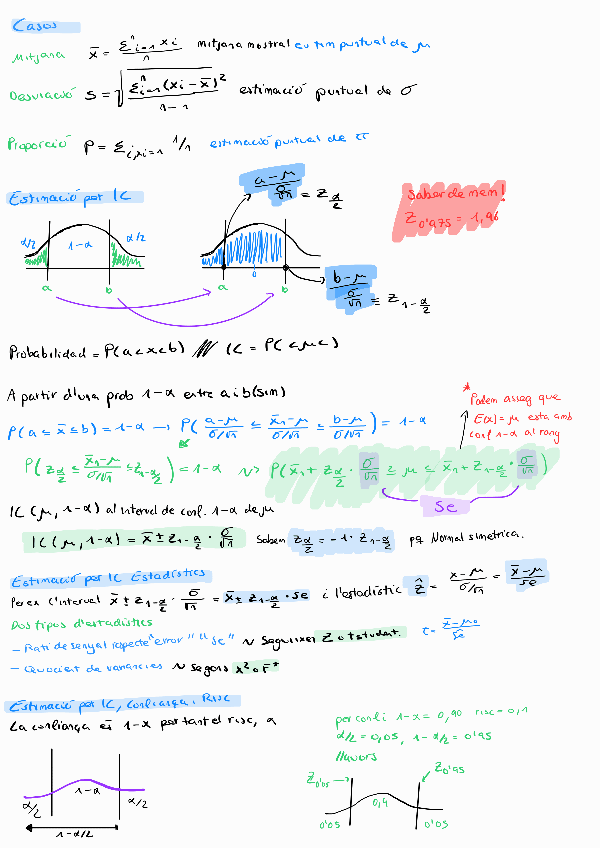 Casos
Mitjana x̄ = Σⁿᵢ₌₁ xi / n mitjana mostral estim puntual de μ
Desviació S = √(Σⁿᵢ₌₁(xi − x̄)² / n−1) estimació puntual de σ
Proporció P = Σi,xi=1 1/n estimació puntual de π
Estimació per IC
(a−μ)/(σ/√n) = Z α/2
Saber de mem!
Z0'975 = 1,96
α/2 1−α α/2
a b
a 0 b
(b−μ)/(σ/√n) = Z 1−α/2
Probabilidad = P(a<x<b) /// IC = P(<μ<)
A partir d'una prob 1−α entre a i b (sim)
P(a ≤ x̄ ≤ b) = 1−α → P((a−μ)/(σ/√n) ≤ (x̄n−μ)/(σ/√n) ≤ (b−μ)/(σ/√n)) = 1−α
* Podem asseg que
E(x)=μ esta amb
conf 1−α al rang
P(Zα/2 ≤ (x̄n−μ)/(σ/√n) ≤ Z1−α/2) = 1−α ~> P(x̄n + Zα/2 · σ/√n ≥ μ ≤ x̄n + Z1−α/2 · σ/√n)
Se
IC(μ, 1−α) al interval de conf. 1−α de μ
IC(μ, 1−α) = x̄ ± Z1−α/2 · σ/√n Sabem Zα/2 = −1 · Z1−α/2 pq Normal simetrica.
Estimació per IC Estadístics
Per ex l'interval x̄ ± Z1−α/2 · σ/√n = x̄ ± Z1−α/2 · se i l'estadístic ẑ = (x−μ)/(σ/√n) = (x̄−μ)/se
Dos tipus d'estadístics
− Rati de senyal respecte "error" "se" ~ Segueixen Z o t student.
− Quocient de variancies ~ segons X² o F
Estimació per IC, Confiança, Risc
La confiança és 1−α per tant el risc, α
per conf i 1−α = 0,90 risc = 0,1
α/2 = 0,05, 1−α/2 = 0'95
llavors
Z0'05 Z0'95
α/2 1−α α/2
0'05 0'05
1−α/2